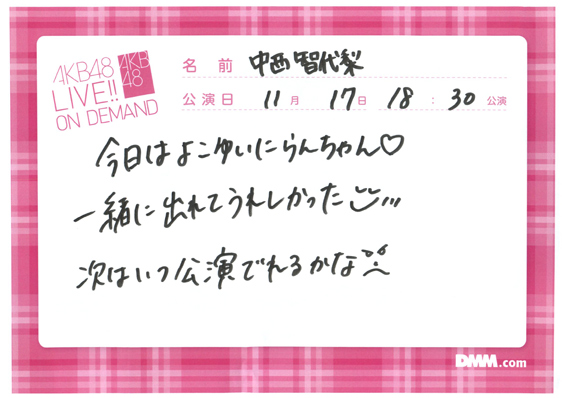 AKB48
LIVE!!
ON DEMAND
AKB
48
名前 中西智代梨
公演日 11月 17日 18:30 公演
今日はよこゆいにらんちゃん♡
一緒に出れてうれしかった
次はいつ公演でれるかな
DMM.com